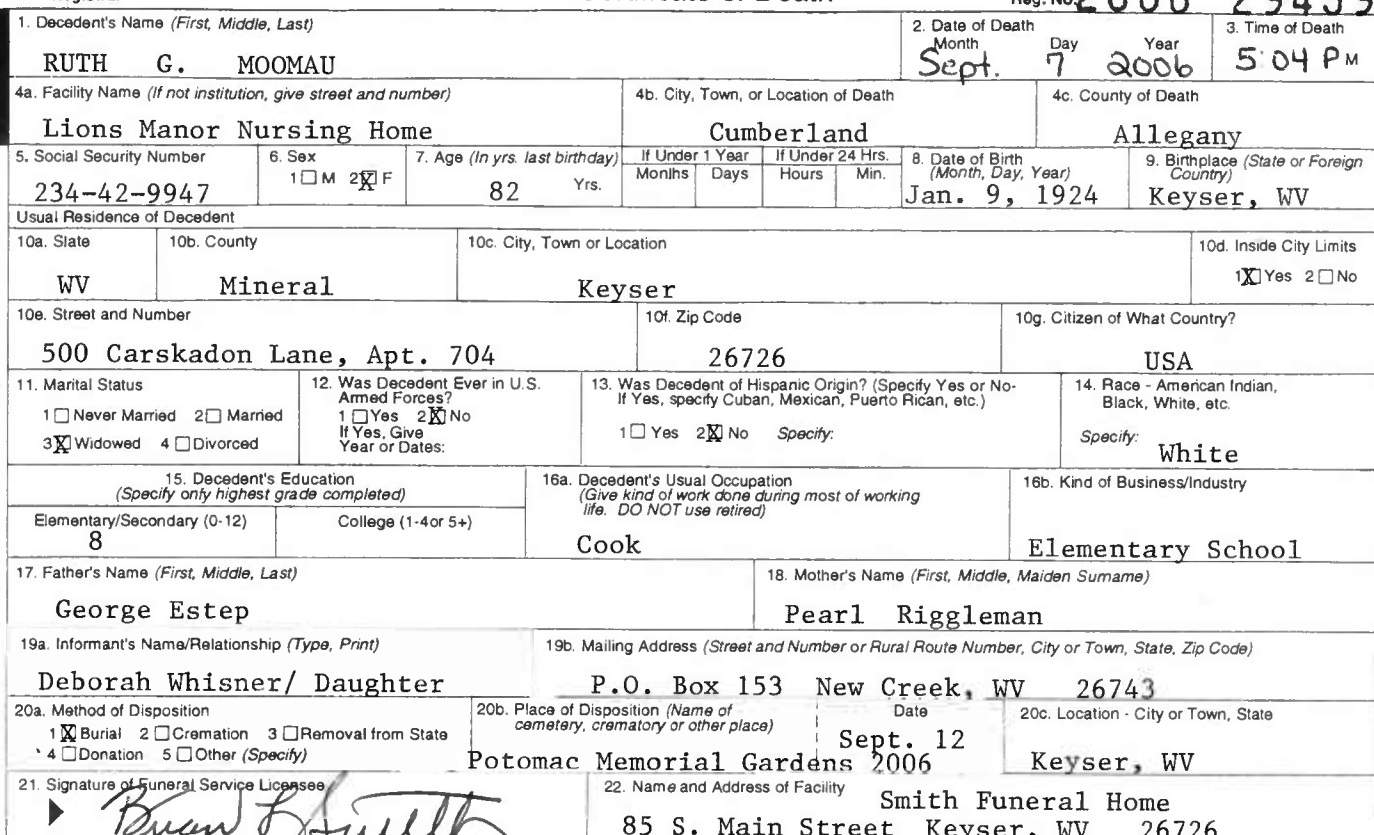 Reg. No. 2006 29455
1. Decedent's Name (First, Middle, Last)
RUTH G. MOOMAU
2. Date of Death
Month Day Year
Sept. 7 2006
3. Time of Death
5:04 PM
4a. Facility Name (If not institution, give street and number)
Lions Manor Nursing Home
4b. City, Town, or Location of Death
Cumberland
4c. County of Death
Allegany
5. Social Security Number
234-42-9947
6. Sex
1☐ M 2☒ F
7. Age (In yrs. last birthday)
82 Yrs.
If Under 1 Year
Months Days
If Under 24 Hrs.
Hours Min.
8. Date of Birth
(Month, Day, Year)
Jan. 9, 1924
9. Birthplace (State or Foreign
Country)
Keyser, WV
Usual Residence of Decedent
10a. State
WV
10b. County
Mineral
10c. City, Town or Location
Keyser
10d. Inside City Limits
1☒ Yes 2☐ No
10e. Street and Number
500 Carskadon Lane, Apt. 704
10f. Zip Code
26726
10g. Citizen of What Country?
USA
11. Marital Status
1☐ Never Married 2☐ Married
3☒ Widowed 4☐ Divorced
12. Was Decedent Ever in U.S.
Armed Forces?
1☐ Yes 2☒ No
If Yes, Give
Year or Dates:
13. Was Decedent of Hispanic Origin? (Specify Yes or No-
If Yes, specify Cuban, Mexican, Puerto Rican, etc.)
1☐ Yes 2☒ No Specify:
14. Race - American Indian,
Black, White, etc.
Specify:
White
15. Decedent's Education
(Specify only highest grade completed)
Elementary/Secondary (0-12)
8
College (1-4or 5+)
16a. Decedent's Usual Occupation
(Give kind of work done during most of working
life. DO NOT use retired)
Cook
16b. Kind of Business/Industry
Elementary School
17. Father's Name (First, Middle, Last)
George Estep
18. Mother's Name (First, Middle, Maiden Surname)
Pearl Riggleman
19a. Informant's Name/Relationship (Type, Print)
Deborah Whisner/ Daughter
19b. Mailing Address (Street and Number or Rural Route Number, City or Town, State, Zip Code)
P.O. Box 153 New Creek, WV 26743
20a. Method of Disposition
1☒ Burial 2☐ Cremation 3☐ Removal from State
4☐ Donation 5☐ Other (Specify)
20b. Place of Disposition (Name of
cemetery, crematory or other place)
Potomac Memorial Gardens
Date
Sept. 12
2006
20c. Location - City or Town, State
Keyser, WV
21. Signature of Funeral Service Licensee
Brian L Smith
22. Name and Address of Facility
Smith Funeral Home
85 S. Main Street Keyser, WV 26726